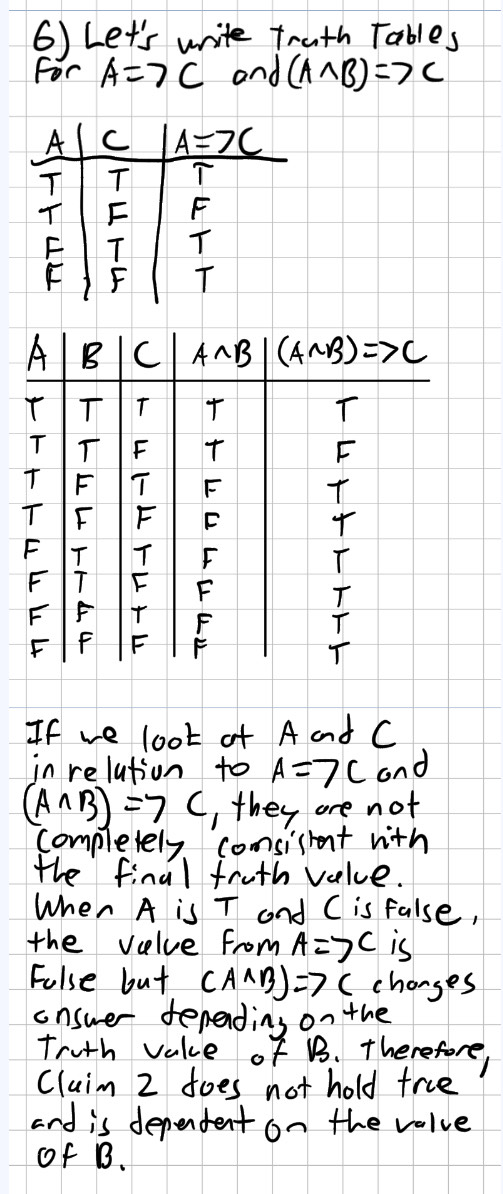 6) Let's write Truth Tables
For A=>C and (A∧B)=>C
A | C | A=>C
T | T | T
T | F | F
F | T | T
F | F | T
A | B | C | A∧B | (A∧B)=>C
T | T | T | T | T
T | T | F | T | F
T | F | T | F | T
T | F | F | F | T
F | T | T | F | T
F | T | F | F | T
F | F | T | F | T
F | F | F | F | T
If we look at A and C
in relation to A=>C and
(A∧B) => C, they are not
completely consistent with
the final truth value.
When A is T and C is False,
the value from A=>C is
False but (A∧B)=>C changes
answer depending on the
Truth value of B. Therefore,
Claim 2 does not hold true
and is dependent on the value
of B.